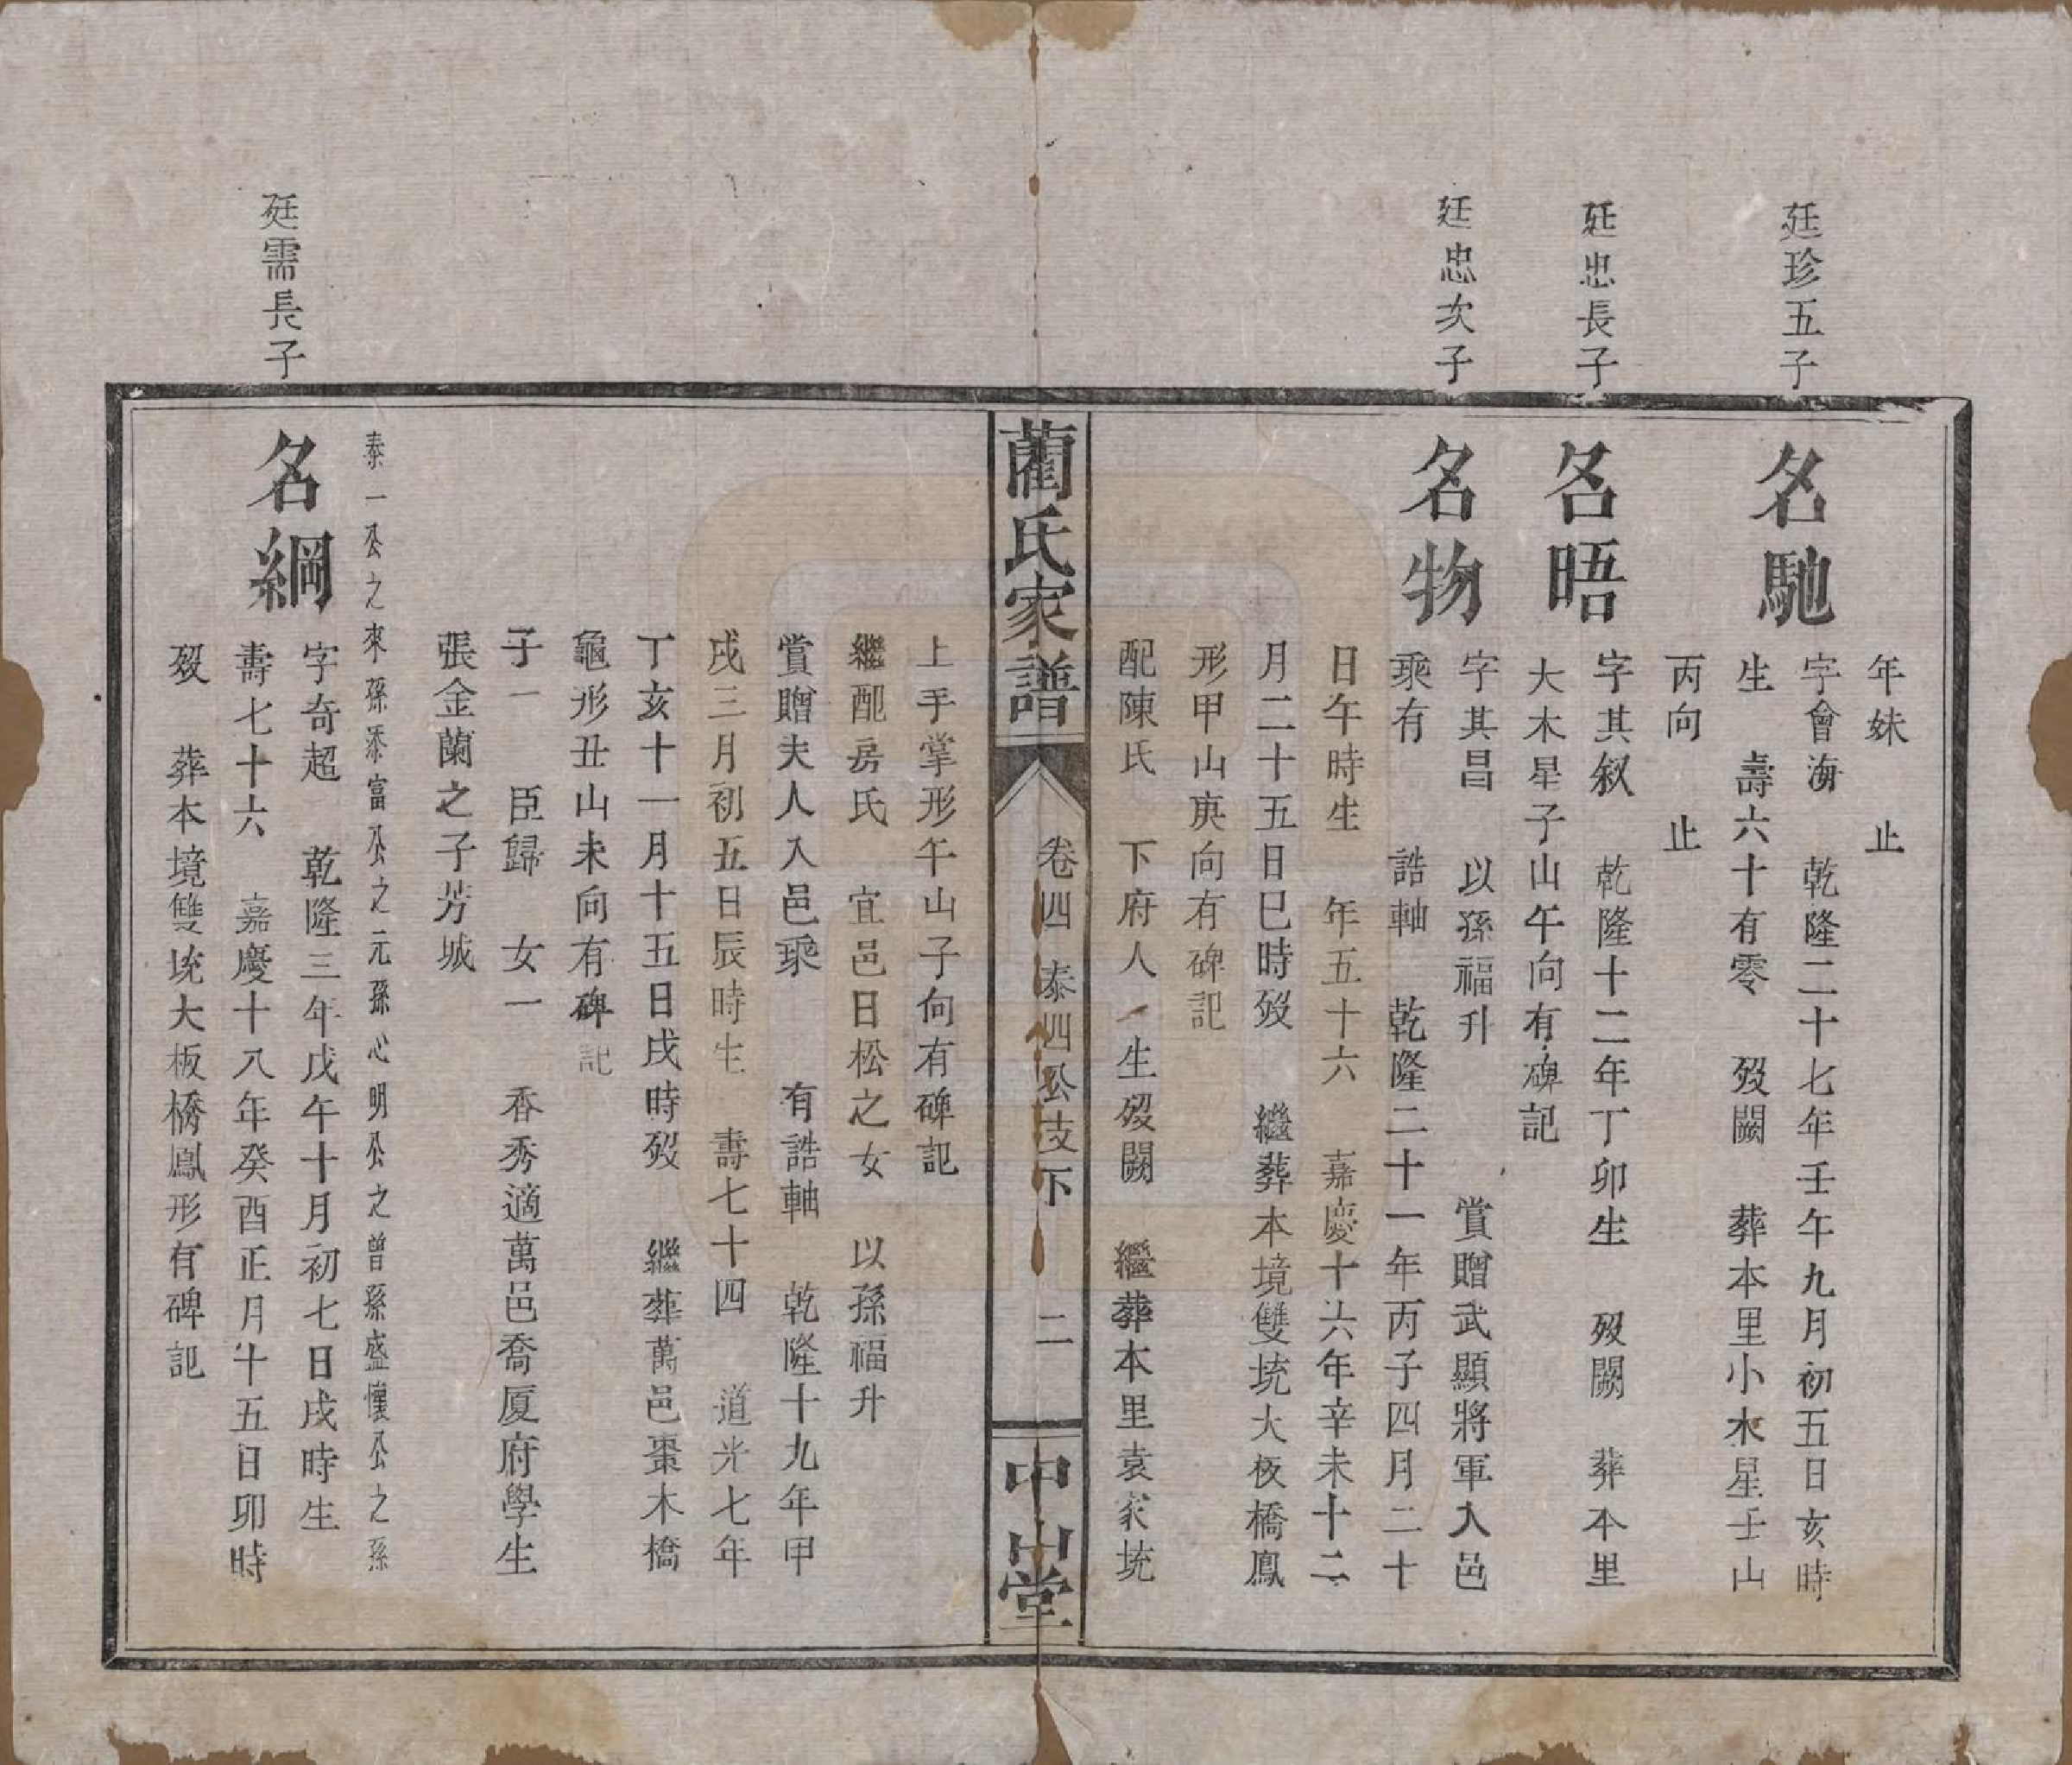 年妹　止
廷珍五子
名馳
字會海　乾隆二十七年壬午九月初五日亥時
生　壽六十有零　歿闕　葬本里小木星壬山
丙向　止
廷忠長子
名晤
字其叙　乾隆十二年丁卯生　歿闕　葬本里
大木星子山午向有碑記
廷忠次子
名物
字其昌　以孫福升　賞贈武顯將軍入邑
乘有　誥軸　乾隆二十一年丙子四月二十
日午時生　年五十六　嘉慶十六年辛未十二
月二十五日巳時歿　繼葬本境雙㘬大板橋鳳
形甲山庚向有碑記
配陳氏　下府人　生歿闕　繼葬本里袁家㘬
藺氏家譜　卷四　泰四公支下　二　中山堂
上手掌形午山子向有碑記
繼配房氏　宜邑日松之女　以孫福升
賞贈夫人入邑乘　有誥軸　乾隆十九年甲
戌三月初五日辰時生　壽七十四　道光七年
丁亥十一月十五日戌時歿　繼葬萬邑棗木橋
龜形丑山未向有碑記
子一　臣歸　女一　香秀適萬邑喬厦府學生
張金蘭之子芳城
泰一公之來孫添富公之元孫心明公之曾孫盛懷公之孫
廷需長子
名綱
字奇超　乾隆三年戊午十月初七日戌時生
壽七十六　嘉慶十八年癸酉正月十五日卯時
歿　葬本境雙㘬大板橋鳳形有碑記